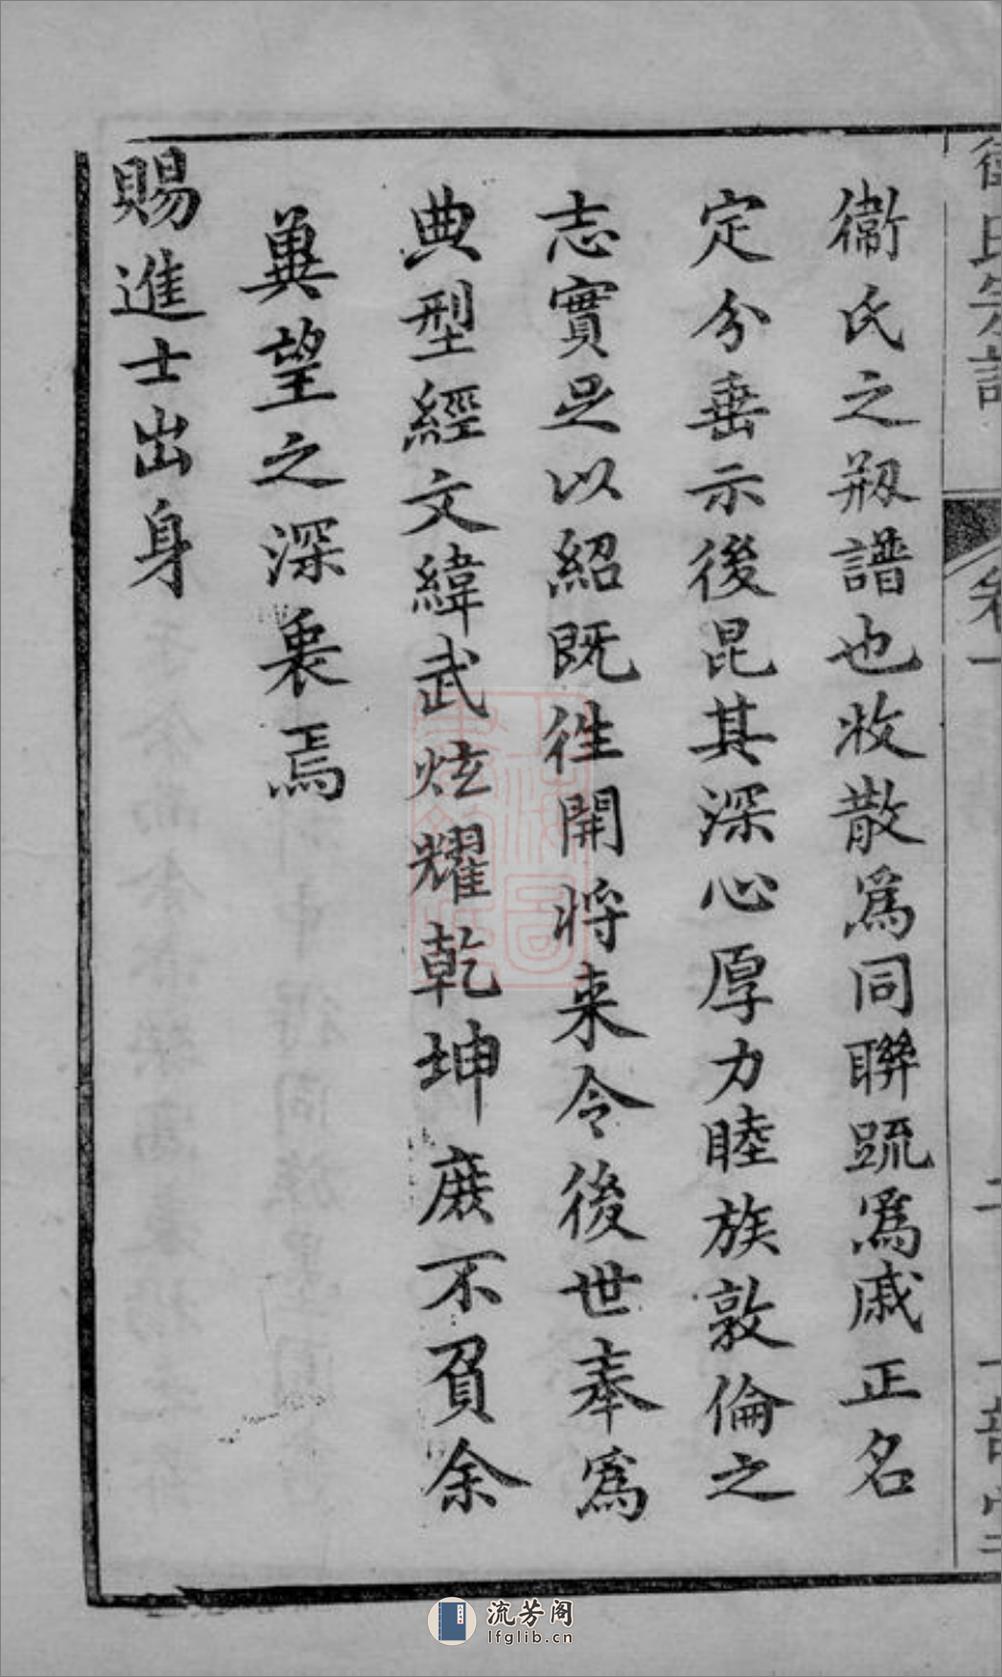 衞氏宗譜 卷一 二
衞氏之剏譜也收散爲同聯疏爲戚正名
定分垂示後昆其深心厚力睦族敦倫之
志實足以紹既徃開將来令後世奉爲
典型經文緯武炫耀乾坤庶不負余
冀望之深衷焉
賜進士出身
流芳阁
lfglib.cn